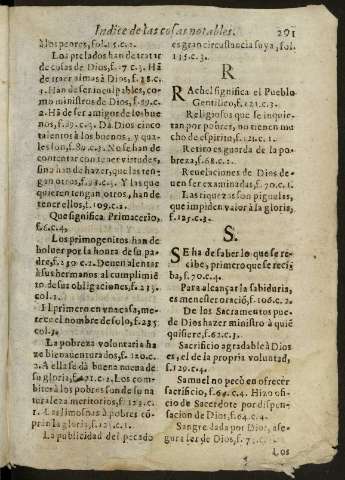 Indice de las cosas notables. 291
à los peores, fol. 15. c. 2.
Los prelados han de tratar
de cosas de Dios, f. 7 c. 3. Hã
de traer almas à Dios, f. 18. c.
1. Han de ser inculpables, co-
mo ministros de Dios, f. 89. c.
2. Hã de ser amigor de los bue
nos, f. 89. c. 3. Dà Dios cinco
talentos à los buenos, y qua-
les son, f. 89. c. 3. No se han de
contentar con tener virtudes,
sino han de hazer, que las ten
gan otros, f. 98. c. 3. Y las que
quieren tengan otros, han de
tenerellos, f. 109. c.
Que significa Primacerio,
f. 6. c. 4.
Los primogenitos han de
boluer por la honra de su pa-
dre, f. 230 c. 2. Deuen alentar
à sus hermanos al cumplimiē
to de sus obligaciones, f. 235.
col. 1.
El primero en vna casa, me-
rece el nombre de solo, f. 235
col. 3.
La pobreza voluntaria ha
ze bienauenturados, f. 120. c.
2. A ella se dà buena nueua de
su gloria, f. 121. c. 1. Los com-
bites à los pobres son de su na
turaleza meritorios, f. 123. c.
1. Las limosnas à pobres cõ-
prãn la gloria, f. 125. c. 1.
La publicidad del pecado
es gran circunstancia suya, fol.
115. c. 3.
R
RAchel significa el Pueblo
Gentilico, f. 121. c. 3.
Religiosos que se inquie-
tan por pobres, no tienen mu
cho de espiritu, f. 121. c. 1.
Retiro es guarda de la po-
breza, f. 68. c. 2.
Reuelaciones de Dios de-
uen ser examinadas, f. 70. c. 1.
Las riquezas son piguelas,
que impiden valor à la gloria,
f. 125. c. 3.
S.
SE ha de saber lo que se re-
cibe, primero que se reci-
ba, f. 70. c. 4.
Para alcançar la sabiduria,
es menester oració, f. 106. c. 2.
De los Sacramentos pue-
de Dios hazer ministro à quiē
quisiere, f. 62. c. 3.
Sacrificio agradable à Dios
es, el de la propria voluntad,
f. 129. c. 4.
Samuel no pecò en ofrecer
sacrificio, f. 64. c. 4. Hizo ofi-
cio de Sacerdote por dispen-
sacion de Dios, f. 64. c. 4.
Sangre dada por Dios, ase-
gura ser de Dios, f. 7
Los